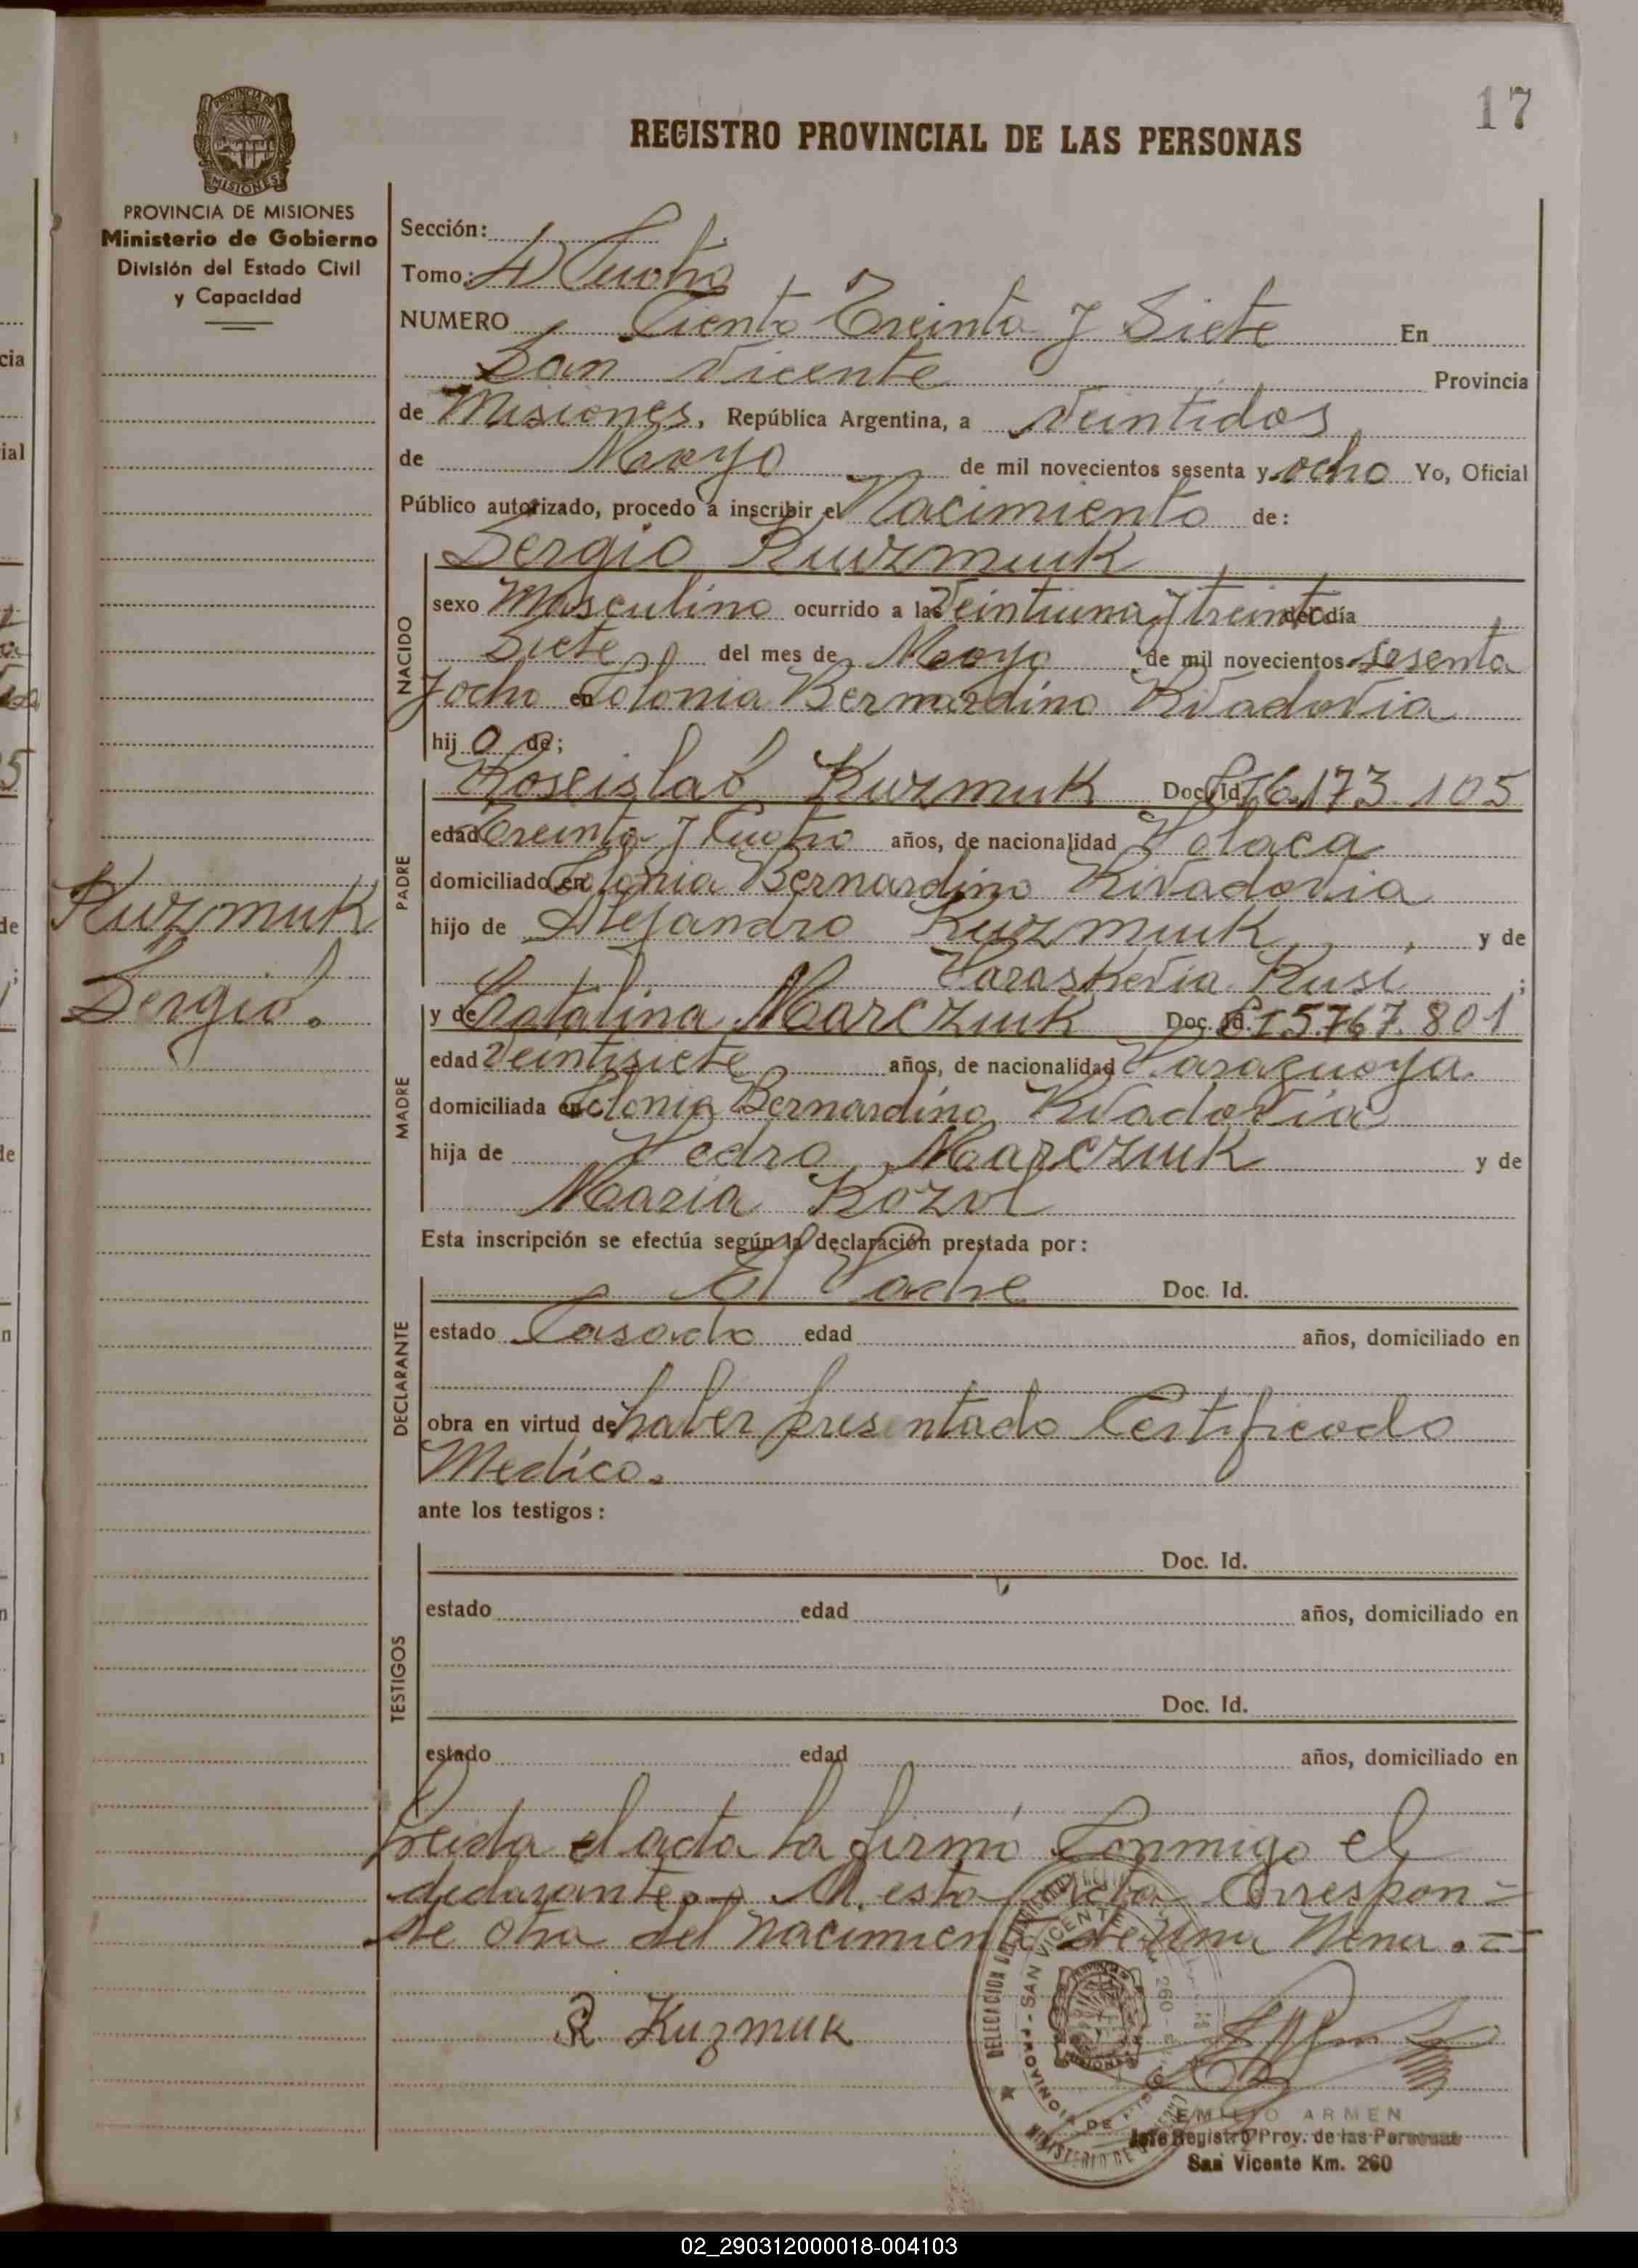 17
REGISTRO PROVINCIAL DE LAS PERSONAS
PROVINCIA DE MISIONES
Ministerio de Gobierno
División del Estado Civil
y Capacidad
Sección:
Tomo: 4 Cuatro
NUMERO Ciento Treinta y Siete En
San Vicente Provincia
de Misiones, República Argentina, a Veintidos
de Mayo de mil novecientos sesenta y ocho Yo, Oficial
Público autorizado, procedo a inscribir el Nacimiento de:
NACIDO
Sergio Kuzmuk
sexo Masculino ocurrido a las Veintiuna y treinta del día
Siete del mes de Mayo de mil novecientos sesenta
y ocho en Colonia Bernardino Rivadavia
hijo de;
PADRE
Kuzmuk Doc. Id. 173.105
edad Treinta y Cuatro años, de nacionalidad Polaca
domiciliado en Colonia Bernardino Rivadavia
hijo de Alejandro Kuzmuk y de
Paraskevia Kusi ;
Kuzmuk
Sergio.
MADRE
y de Catalina Marczuk Doc. Id. 5.767.801
edad Veintisiete años, de nacionalidad Paraguaya
domiciliada en Colonia Bernardino Rivadavia
hija de Pedro Marczuk y de
Maria Kozol
Esta inscripción se efectúa según la declaración prestada por:
DECLARANTE
El Padre Doc. Id.
estado Casado edad años, domiciliado en
obra en virtud de haber presentado Certificado
Medico.
ante los testigos:
TESTIGOS
Doc. Id.
estado edad años, domiciliado en
Doc. Id.
estado edad años, domiciliado en
Leida el acta la firmó Conmigo el
declarante. A esta acta Correspon=
de otra del nacimiento de una Nena.=
R Kuzmuk
SAN VICENTE
EMILIO ARMEN
Jefe Registro Prov. de las Personas
San Vicente Km. 260
02_290312000018-004103